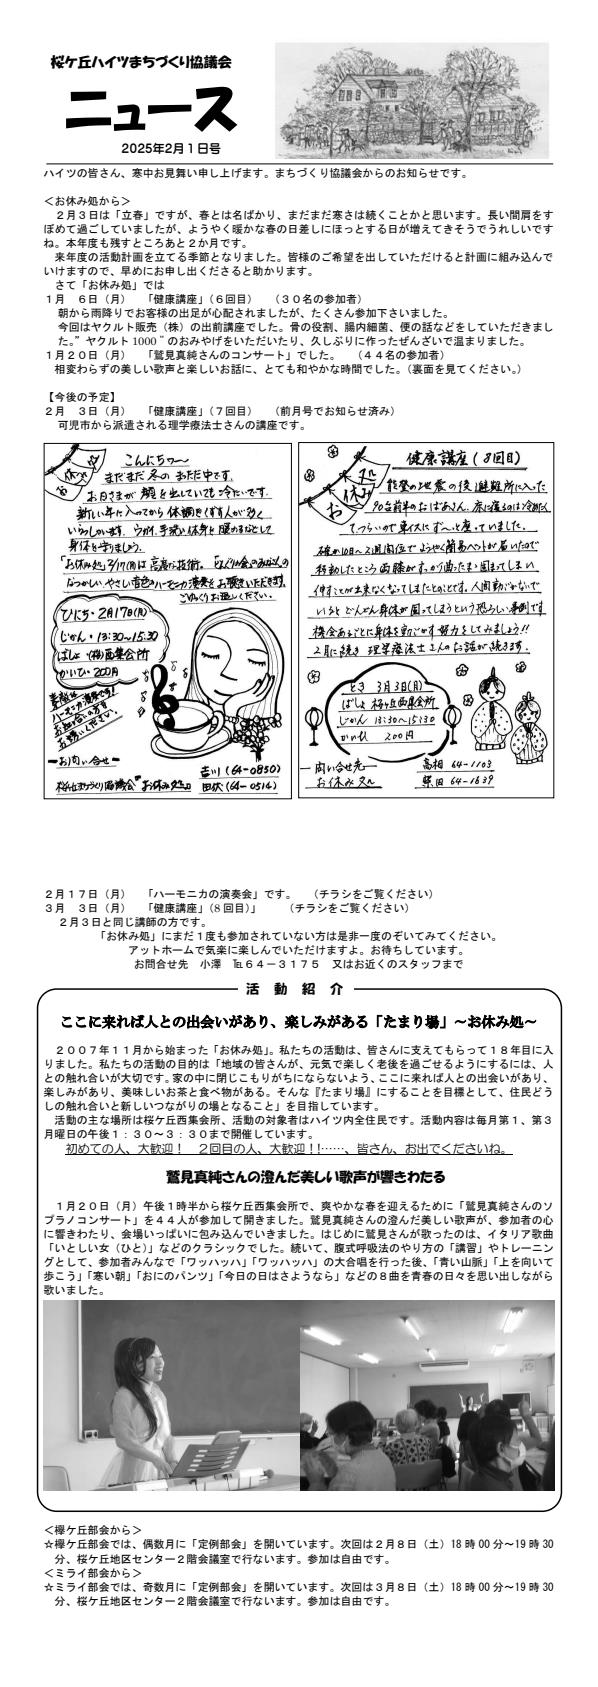 桜ケ丘ハイツまちづくり協議会
ニュース
2025年2月1日号
ハイツの皆さん、寒中お見舞い申し上げます。まちづくり協議会からのお知らせです。
＜お休み処から＞
２月３日は「立春」ですが、春とは名ばかり、まだまだ寒さは続くことかと思います。長い間肩をす
ぼめて過ごしていましたが、ようやく暖かな春の日差しにほっとする日が増えてきそうでうれしいです
ね。本年度も残すところあと２か月です。
来年度の活動計画を立てる季節となりました。皆様のご希望を出していただけると計画に組み込んで
いけますので、早めにお申し出くださると助かります。
さて「お休み処」では
１月　６日（月）　「健康講座」（６回目）　（３０名の参加者）
朝から雨降りでお客様の出足が心配されましたが、たくさん参加下さいました。
今回はヤクルト販売（株）の出前講座でした。骨の役割、腸内細菌、便の話などをしていただきまし
た。”ヤクルト 1000 ”のおみやげをいただいたり、久しぶりに作ったぜんざいで温まりました。
１月２０日（月）　「鷲見真純さんのコンサート」でした。　（４４名の参加者）
相変わらずの美しい歌声と楽しいお話に、とても和やかな時間でした。（裏面を見てください。）
【今後の予定】
２月　３日（月）　「健康講座」（７回目）　（前月号でお知らせ済み）
可児市から派遣される理学療法士さんの講座です。
お休み処
こんにちワ〜
まだまだ冬のまっただ中です。
お日さまが顔を出していても冷たいです。
新しい年に入ってから体調をくずす人が多く
いらっしゃいます。うがい、手洗い、休身を暖めるなどして
身体を守りましょう。
「お休み処」2/17(月)は高高な技術。
なつかしい、やさしい音色のハーモニカ演奏をお聴きいただきます。
ごゆっくりお過しください。
ひにち・2月17日(月)
じかん・13:30〜15:30
ばしょ・(桜)西集会所
かいひ・200円
お誘いください。
ーお問い合せー
桜ヶ丘まちづくり協議会 "お休み処"
吉川 (64-0850)
田伏 (64-0514)
お休み処
健康講座（8回目）
能登の地震の後、避難所に入った
90台前半のおばあさん。床に座るのは冷めたく
てつらいので車イスにずーっと座っていました。
確か10日〜2週間位でようやく簡易ベットが届いたので
移動したところ両膝がすっかり曲ったまま固まってしまい
伸すことが出来なくなってしまったとのことです。人間動かないで
いるとどんどん身体が固ってしまうという恐ろしい事例です
機会あるごとに身体を動かす努力をしてみましょう!!
2月に続き 理学療法士さんのお話が続きます。
とき 3月3日(月)
ばしょ 桜ヶ丘西集会所
じかん 13:30〜15:30
かいひ 200円
ー問い合せ先
お休み処
高相 64-1103
柴田 64-1639
２月１７日（月）　「ハーモニカの演奏会」です。　（チラシをご覧ください）
３月　３日（月）　「健康講座」（８回目）」　　（チラシをご覧ください）
２月３日と同じ講師の方です。
「お休み処」にまだ１度も参加されていない方は是非一度のぞいてみてください。
アットホームで気楽に楽しんでいただけますよ。お待ちしています。
お問合せ先　小澤　℡６４－３１７５　又はお近くのスタッフまで
活　動　紹　介
ここに来れば人との出会いがあり、楽しみがある「たまり場」～お休み処～
２００７年１１月から始まった「お休み処」。私たちの活動は、皆さんに支えてもらって１８年目に入
りました。私たちの活動の目的は「地域の皆さんが、元気で楽しく老後を過ごせるようにするには、人
との触れ合いが大切です。家の中に閉じこもりがちにならないよう、ここに来れば人との出会いがあり、
楽しみがあり、美味しいお茶と食べ物がある。そんな『たまり場』にすることを目標として、住民どう
しの触れ合いと新しいつながりの場となること」を目指しています。
活動の主な場所は桜ケ丘西集会所、活動の対象者はハイツ内全住民です。活動内容は毎月第１、第３
月曜日の午後１：３０～３：３０まで開催しています。
初めての人、大歓迎！　２回目の人、大歓迎！!……、皆さん、お出でくださいね。
鷲見真純さんの澄んだ美しい歌声が響きわたる
１月２０日（月）午後１時半から桜ケ丘西集会所で、爽やかな春を迎えるために「鷲見真純さんのソ
プラノコンサート」を４４人が参加して開きました。鷲見真純さんの澄んだ美しい歌声が、参加者の心
に響きわたり、会場いっぱいに包み込んでいきました。はじめに鷲見さんが歌ったのは、イタリア歌曲
「いとしい女（ひと）」などのクラシックでした。続いて、腹式呼吸法のやり方の「講習」やトレーニン
グとして、参加者みんなで「ワッハッハ」「ワッハッハ」の大合唱を行った後、「青い山脈」「上を向いて
歩こう」「寒い朝」「おにのパンツ」「今日の日はさようなら」などの８曲を青春の日々を思い出しながら
歌いました。
＜欅ケ丘部会から＞
☆欅ケ丘部会では、偶数月に「定例部会」を開いています。次回は２月８日（土）18 時 00 分～19 時 30
分、桜ケ丘地区センター２階会議室で行ないます。参加は自由です。
＜ミライ部会から＞
☆ミライ部会では、奇数月に「定例部会」を開いています。次回は３月８日（土）18 時 00 分～19 時 30
分、桜ケ丘地区センター２階会議室で行ないます。参加は自由です。